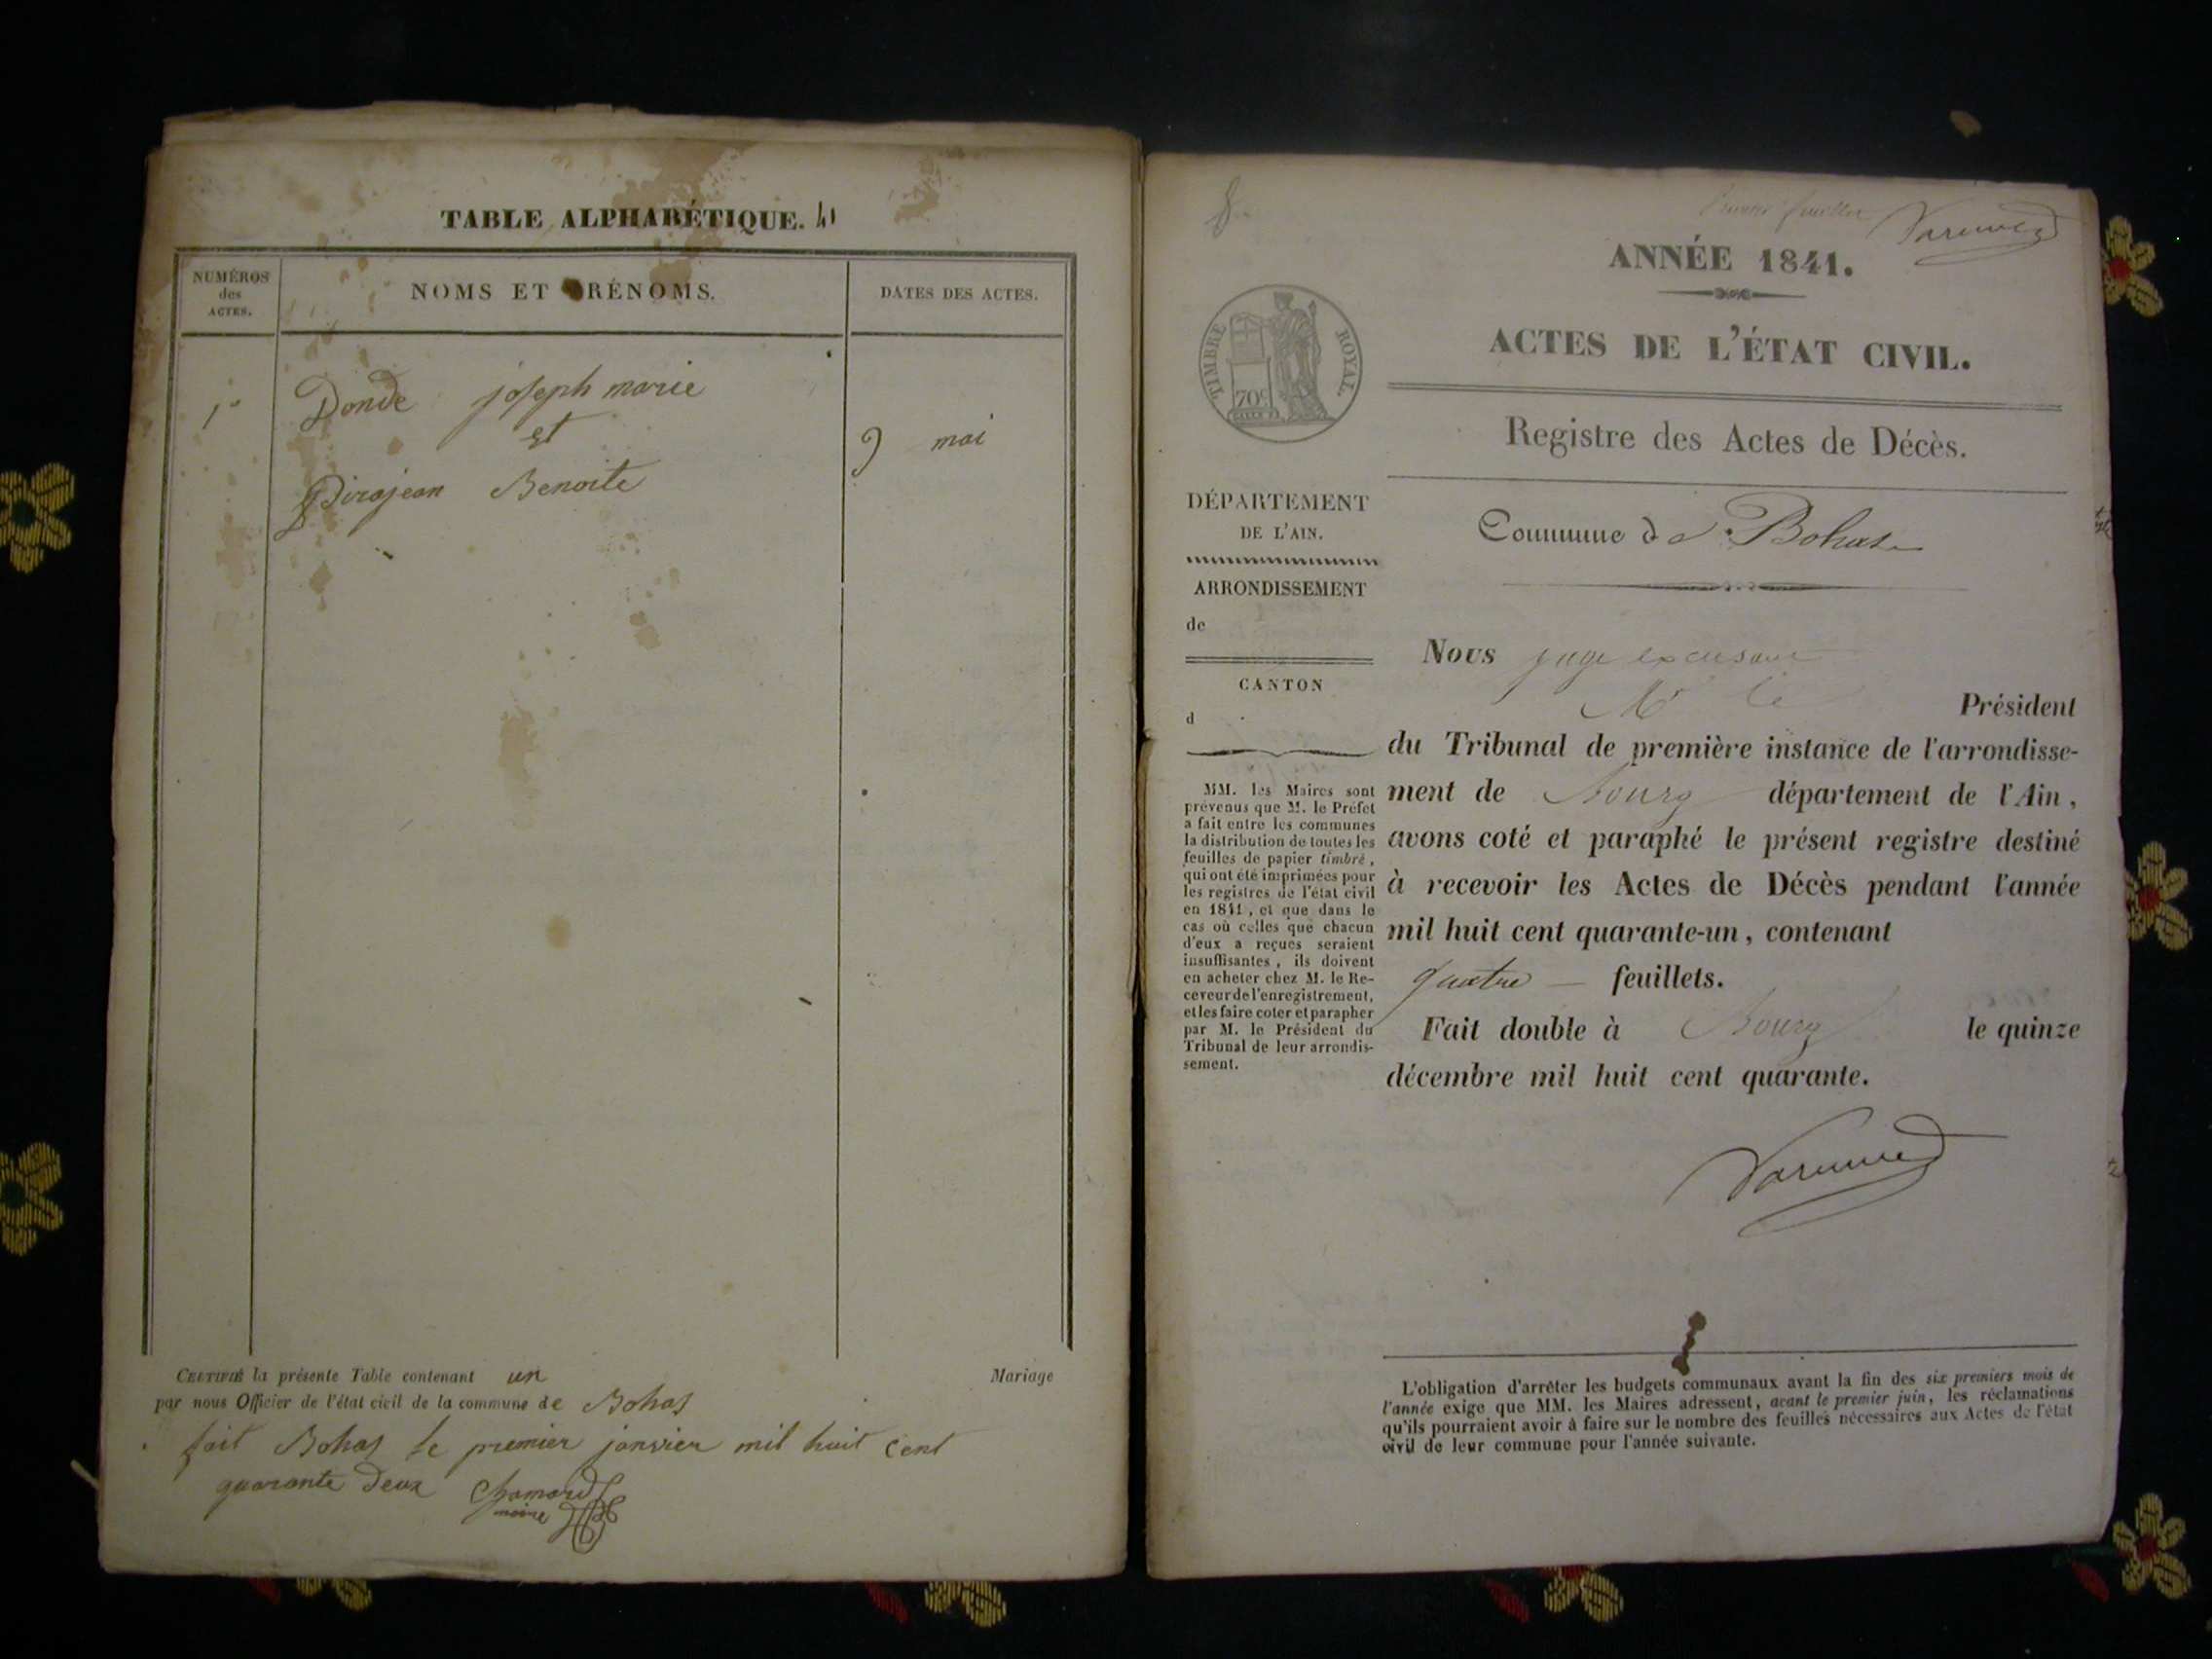 TABLE ALPHABÉTIQUE. 41
NUMÉROS
des
ACTES.
NOMS ET PRÉNOMS.
DATES DES ACTES.
1º
Donde joseph marie
et
9 mai
Pirajean Benoite
CERTIFIÉ la présente Table contenant un Mariage
par nous Officier de l'état civil de la commune de Bohas
fait Bohas le premier janvier mil huit cent
quarante deux Chamard
maire
premier feuillet
ANNÉE 1841.
TIMBRE ROYAL.
70c
ACTES DE L'ÉTAT CIVIL.
Registre des Actes de Décès.
DÉPARTEMENT
DE L'AIN.
ARRONDISSEMENT
de
CANTON
d
MM. les Maires sont
prévenus que M. le Préfet
a fait entre les communes
la distribution de toutes les
feuilles de papier timbré,
qui ont été imprimées pour
les registres de l'état civil
en 1841, et que dans le
cas où celles que chacun
d'eux a reçues seraient
insuffisantes, ils doivent
en acheter chez M. le Re-
ceveur de l'enregistrement,
et les faire coter et parapher
par M. le Président du
Tribunal de leur arrondis-
sement.
Commune de Bohas
Nous juge excusant
Mr le Président
du Tribunal de première instance de l'arrondisse-
ment de Bourg département de l'Ain,
avons coté et paraphé le présent registre destiné
à recevoir les Actes de Décès pendant l'année
mil huit cent quarante-un, contenant
quatre feuillets.
Fait double à Bourg le quinze
décembre mil huit cent quarante.
L'obligation d'arrêter les budgets communaux avant la fin des six premiers mois de
l'année exige que MM. les Maires adressent, avant le premier juin, les réclamations
qu'ils pourraient avoir à faire sur le nombre des feuilles nécessaires aux Actes de l'état
civil de leur commune pour l'année suivante.